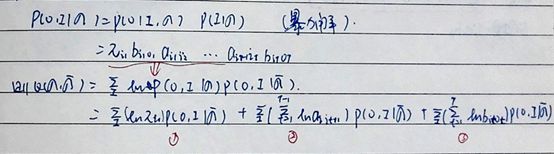 P(O,I|λ) = P(O|I,λ) P(I|λ)
= π_{i1} b_{i1o1} a_{i1i2} … a_{iT-1iT} b_{iToT}
Q(λ,λ̄) = Σ_I ln P(O,I|λ) P(O,I|λ̄).
= Σ_I (ln π_{i1}) P(O,I|λ̄) + Σ_I (Σ_{t=1}^{T-1} ln a_{it it+1}) P(O,I|λ̄) + Σ_I (Σ_{t=1}^{T} ln b_{itot}) P(O,I|λ̄)
① ② ③